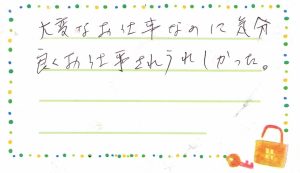 大変なお仕事なのに気分
良くお仕事されうれしかった。